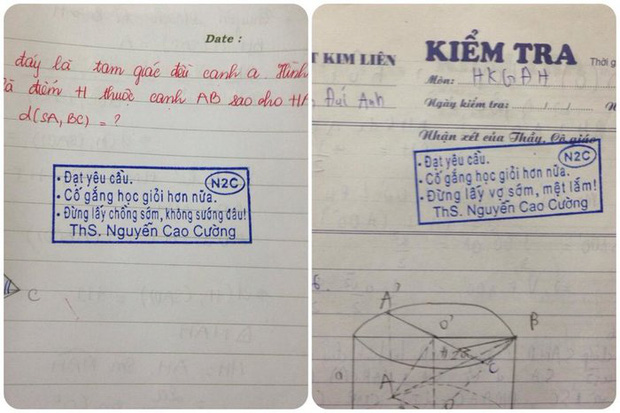 Date :
đáy là tam giác đài canh a. Hình
điểm H thuộc cạnh AB sao cho HA
d(SA, BC) = ?
• Đạt yêu cầu.
N2C
• Cố gắng học giỏi hơn nữa.
• Đừng lấy chồng sớm, không sướng đâu!
ThS. Nguyễn Cao Cường
C
T KIM LIÊN
KIỂM TRA
Thời g
Môn: HKGĐH
Đuí Anh
Ngày kiểm tra: / /
N
Nhận xét của Thầy, Cô giáo
• Đạt yêu cầu.
N2C
• Cố gắng học giỏi hơn nữa.
• Đừng lấy vợ sớm, mệt lắm!
ThS. Nguyễn Cao Cường
A'
O'
B
C
A
O